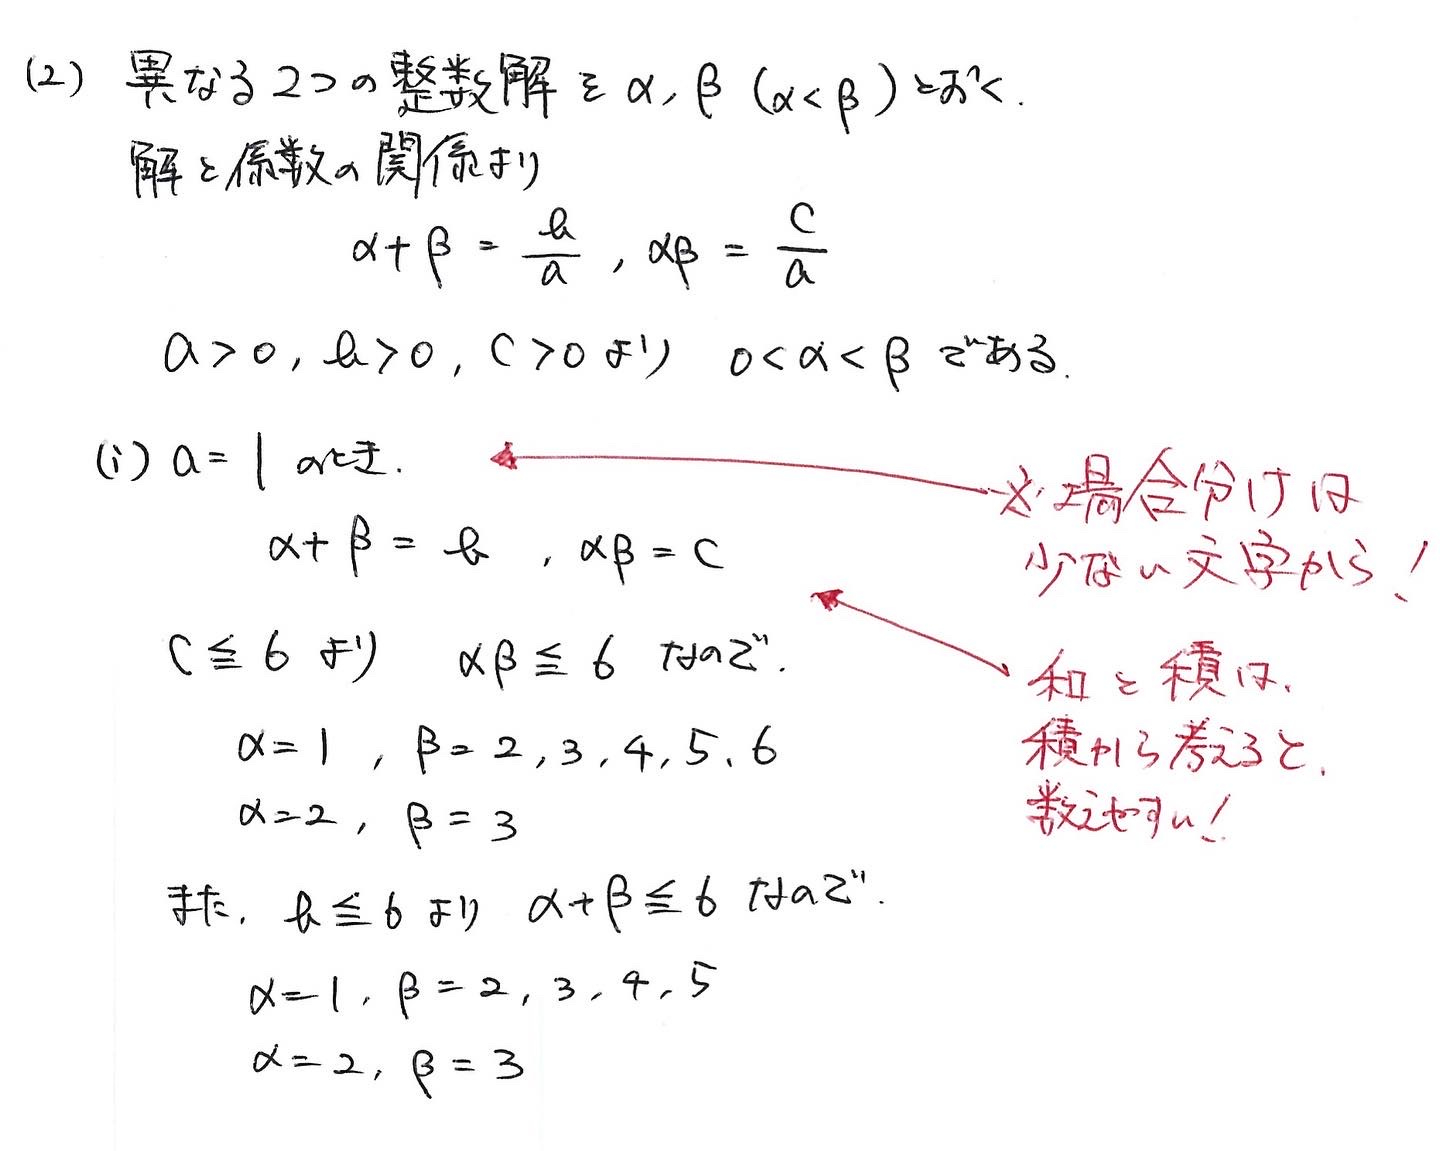 (2) 異なる2つの整数解を α, β (α<β) とおく.
解と係数の関係より
α+β = b/a , αβ = c/a
a>0, b>0, c>0 より 0<α<β である.
(i) a=1 のとき.
α+β = b , αβ = c
c≦6 より αβ≦6 なので.
α=1 , β=2, 3, 4, 5, 6
α=2 , β=3
また. b≦6 より α+β≦6 なので.
α=1, β=2, 3, 4, 5
α=2, β=3
※場合分けは
少ない文字から!
和と積は、
積から考えると、
数えやすい!